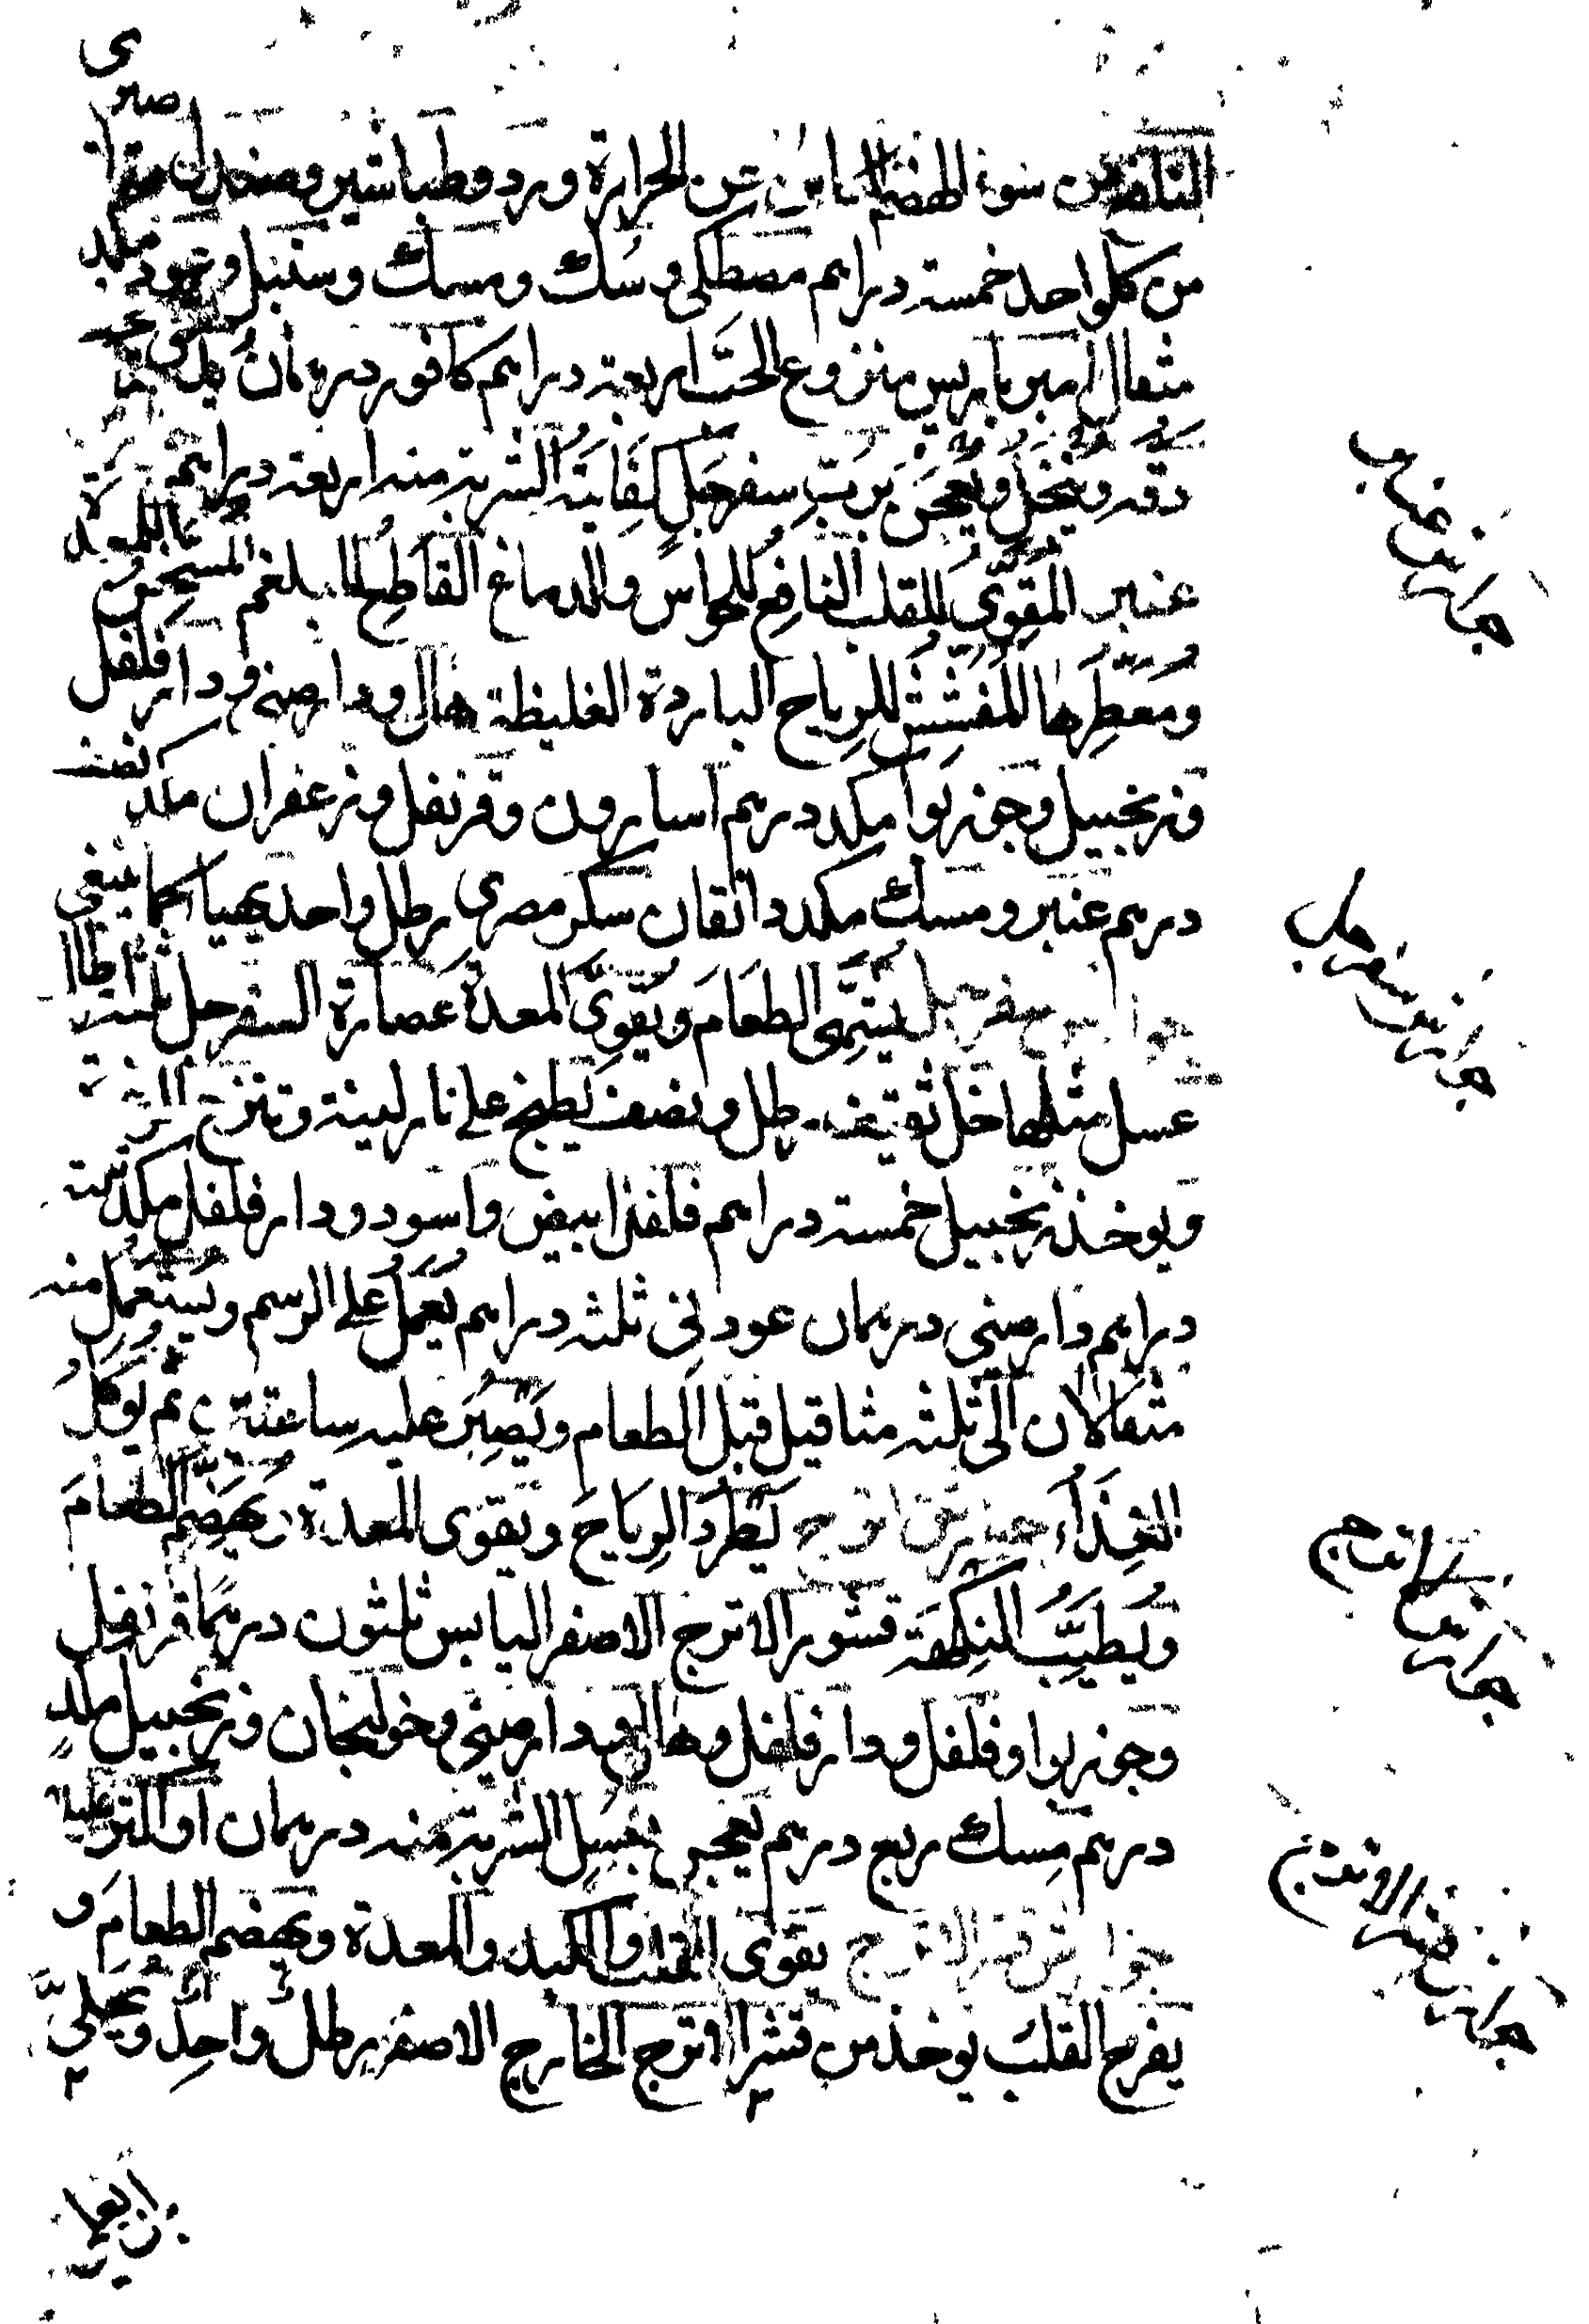 من سوء الهضم عن الحرارة ورد وطباشير وصندلان
من كل واحد خمسة دراهم مصطكى و سك ومسك وسنبل وعود مكد
مثقال امير باريس منزوع الحب اربعة دراهم كافور درهمان
دقه وينخل ويعجن برب سفرجل كفايته الشربة منه اربعة دراهم
عنبر المقوى للقلب النافع للحواس والدماغ القاطع للبلغم المسخن للمعدة
ومعطرها المفشش للرياح الباردة الغليظة هال ودارصيني ودار فلفل
وزنجبيل وجوزبوا مكد درهم اسارون وقرنفل وزعفران مكد نصف
درهم عنبر ومسك مكد دانقان سكر مصرى رطل واحد يهيا كما ينبغى
سفرجل يشهى الطعام ويقوى المعدة عصارة السفرجل ثلثة ارطال
عسل مثلها خل ثقيف رطل ونصف يطبخ على نار لينة وتنزع
ويوخذ زنجبيل خمسة دراهم فلفل ابيض واسود ودار فلفل مكد ثلثة
دراهم دارصينى درهمان عود نى ثلثه دراهم يعمل على الرسم ويستعمل منه
مثقالان الى ثلثه مثاقيل قبل الطعام ويصبر عليه ساعة ثم يوكل
الغذاء جوارش اترج يطرد الرياح ويقوى المعدة ويهضم الطعام
ويطيب النكهة قشور الاترج الاصفر اليابس ثلثون درهما قرنفل
وجوزبوا وفلفل ودار فلفل وهال ودارصينى وخولنجان وزنجبيل مكد
درهم مسك ربع درهم يعجن بعسل الشربة منه درهمان او
جوارش قشر الاترج يقوى القلب والكبد والمعدة ويهضم الطعام و
يفرح القلب يوخذ من قشر الاترج الخارج الاصفر رطل واحد
جوارش عنبر
جوارش سفرجل
جوارش اترج
جوارش قشر الاترج